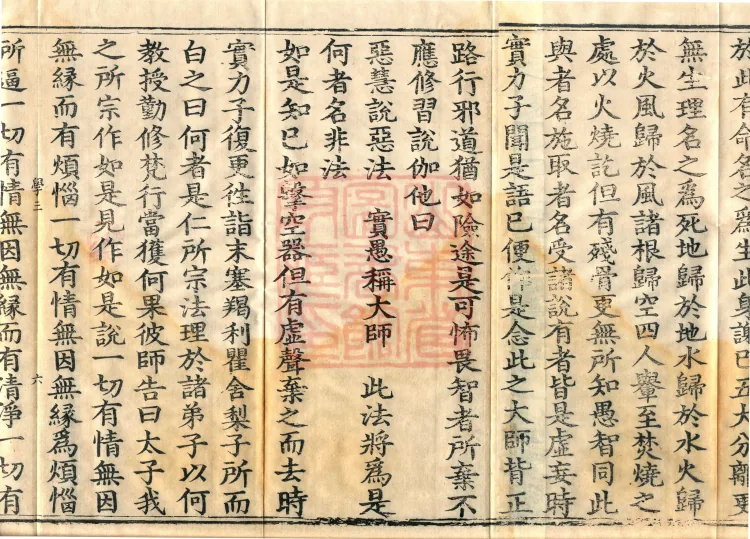 於此有命名之為生此身謝已五大分離更
無生理名之爲死地歸於地水歸於水火歸
於火風歸於風諸根歸空四人轝至焚燒之
處以火燒訖但有殘骨更無所知愚智同此
與者名施取者名受諸說有者皆是虛妄時
實力子聞是語已便作是念此之大師皆正
路行邪道猶如險途是可怖畏智者所棄不
應修習說伽他曰
惡慧說惡法 實愚稱大師 此法將爲是
何者名非法
如是知已如擊空器但有虛聲棄之而去時
實力子復更往詣末塞羯利瞿舍梨子所而
白之曰何者是仁所宗法理於諸弟子以何
教授勤修梵行當獲何果彼師告曰太子我
之所宗作如是見作如是說一切有情無因
無緣而有煩惱一切有情無因無緣爲煩惱
學三 六
所逼一切有情無因無緣而有清淨一切有